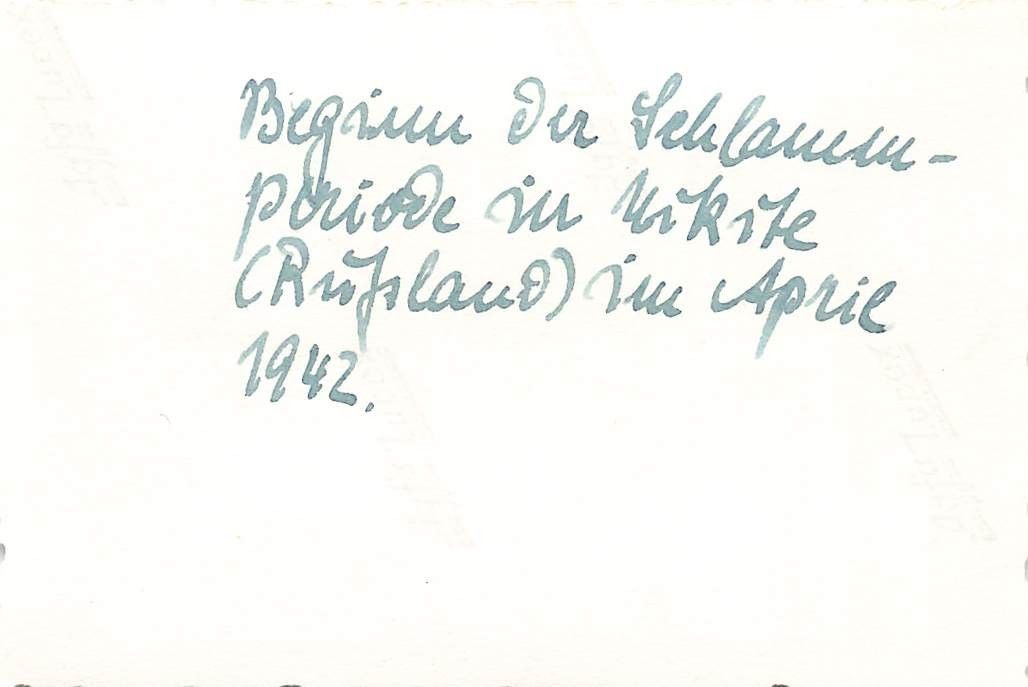 Beginn der Schlamm-
periode in Nikite
(Rußland) im April
1942.